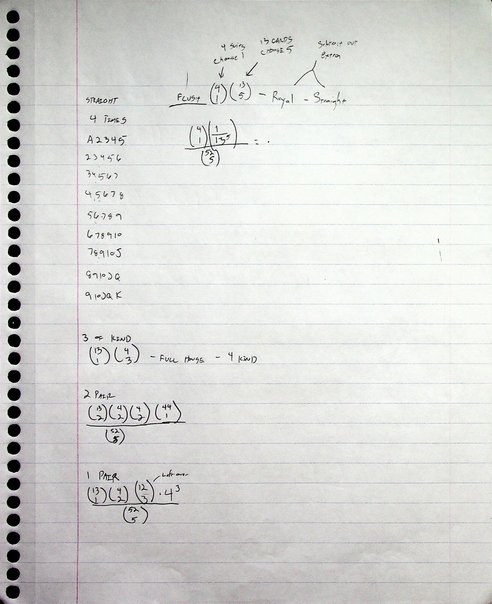 4 suits
choose 1
13 CARDS
CHOOSE 5
Subtract out
extras
FLUSH (4 1) (13 5) - Royal - Straight
(4 1) (1 13 5)
(52 5) = .
STRAIGHT
4 TIMES
A 2 3 4 5
2 3 4 5 6
3 4 5 6 7
4 5 6 7 8
5 6 7 8 9
6 7 8 9 10
7 8 9 10 J
8 9 10 J Q
9 10 J Q K
3 OF KIND
(13 1) (4 3) - FULL HOUSE - 4 KIND
2 PAIR
(13 2) (4 2) (4 2) (44 1)
(52 5)
1 PAIR
(13 1) (4 2) (12 3) · 4^3
(52 5)